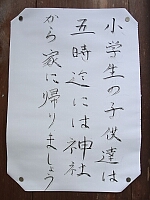 小学生の子供達は
五時迄には神社
から家に帰りましょう